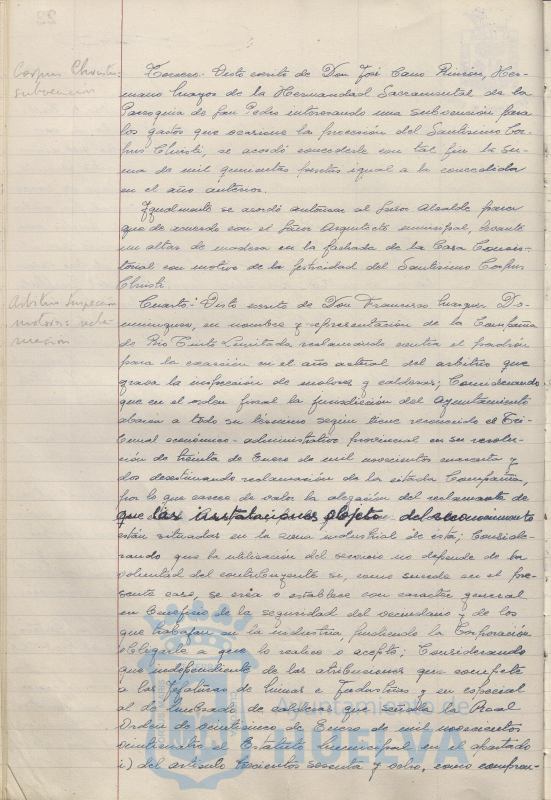 Corpus Christi:
subvención
Tercero.- Visto escrito de Don José Cano Rincón, Her-
mano Mayor de la Hermandad Sacramental de la
Parroquia de San Pedro interesando una subvención para
los gastos que ocasione la procesión del Santísimo Cor-
pus Christi, se acordó concederle con tal fin la su-
ma de mil quinientas pesetas igual a la concedida
en el año anterior.
Igualmente se acordó autorizar al Señor Alcalde para
que de acuerdo con el Señor Arquitecto municipal, levante
un altar de madera en la fachada de la Casa Consis-
torial con motivo de la festividad del Santísimo Corpus
Christi.
Arbitrio Inspección
motores: recla-
mación
Cuarto.- Visto escrito de Don Francisco Marquez Do-
minguez, en nombre y representación de la Compañia
de Rio Tinto Limitada reclamando contra el padrón
para la exacción en el año actual del arbitrio que
grava la inspección de motores y calderas; Considerando
que en el orden fiscal la jurisdicción del Ayuntamiento
abarca a todo su término según tiene reconocido el Tri-
bunal económico-administrativo provincial en su resolu-
ción de treinta de Enero de mil novecientos cuarenta y
dos desestimando reclamación de la citada Compañia,
por lo que carece de valor la alegación del reclamante de
que las instalaciones objeto del reconocimiento
están situadas en la zona industrial de ésta; Conside-
rando que la utilización del servicio no depende de la
voluntad del contribuyente si, como sucede en el pre-
sente caso, se crea o establece con carácter general
en beneficio de la seguridad del vecindario y de los
que trabajan en la industria, pudiendo la Corporación
obligarle a que lo realice o acepte; Considerando
que independiente de las atribuciones que compete
a las Jefaturas de Minas e Industrias y en especial
al de timbrado de calderas que señala la Real
Orden de veintisiete de Enero de mil novecientos
veinticuatro el Estatuto Municipal en el apartado
i) del artículo trescientos sesenta y ocho, como compren-
Ayuntamiento de
HUELVA